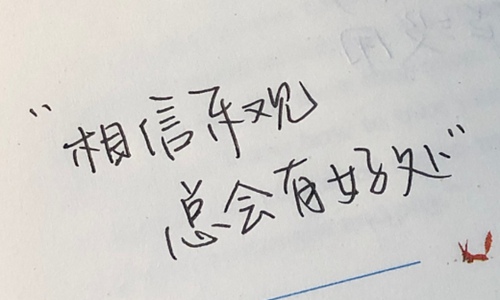 “相信乐观
总会有好处”